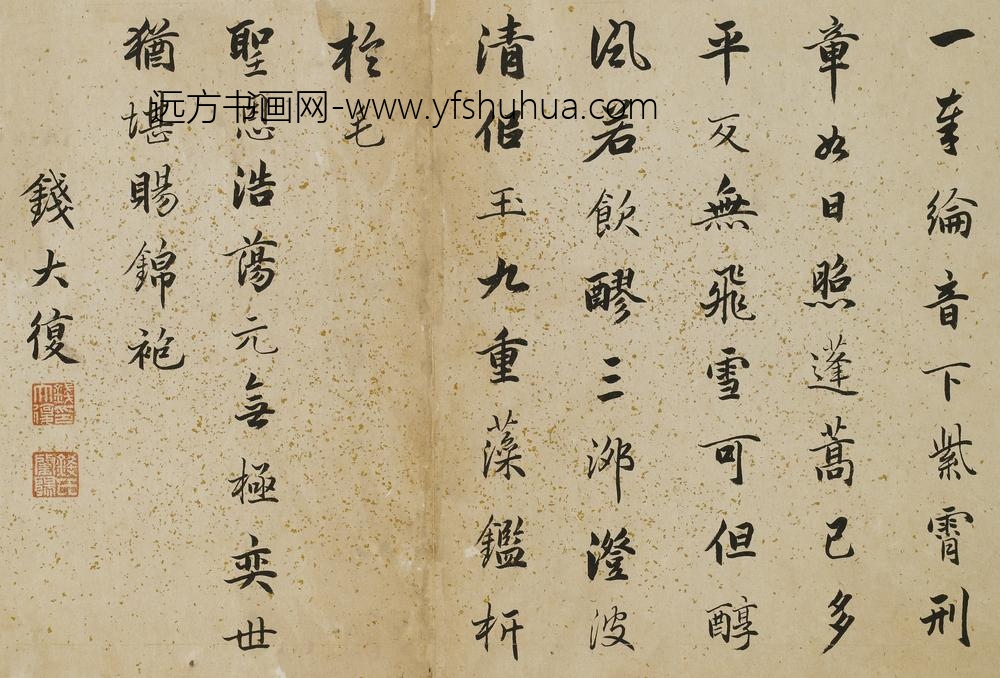 一奉綸音下紫霄刑
章如日照蓬蒿已多
平反無飛雪可但醇
風若飲醪三泖澄波
清佀玉九重藻鑑析
於毛
聖恩浩蕩元無極奕世
猶堪賜錦袍
錢大復
远方书画网-www.yfshuhua.com